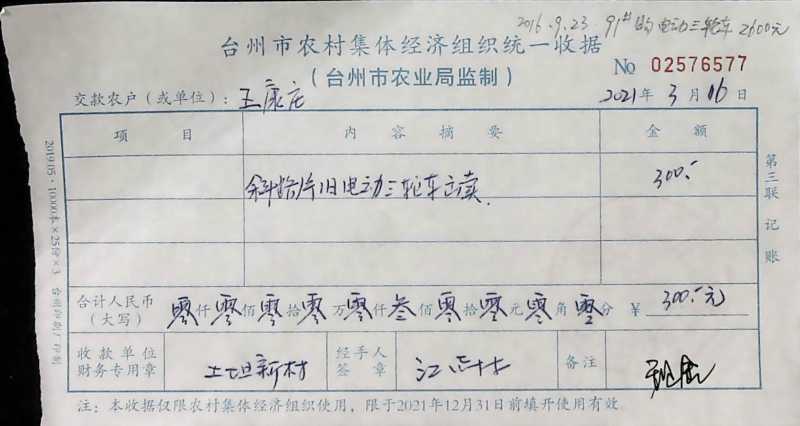 2016.9.23 91# 购电动三轮车 2600元
台州市农村集体经济组织统一收据
(台州市农业局监制)
No 02576577
交款农户(或单位): 王康庄
2021年 3月 16日
项 目 内 容 摘 要 金 额
旧电动三轮车 300.-
合计人民币(大写) 零仟零佰零拾零万零仟叁佰零拾零元零角零分 ¥ 300.-元
收款单位财务专用章 新村 经手人签章 江 备注
注:本收据仅限农村集体经济组织使用,限于2021年12月31日前填开使用有效
第三联 记账
2019.05·10000本×25份×3